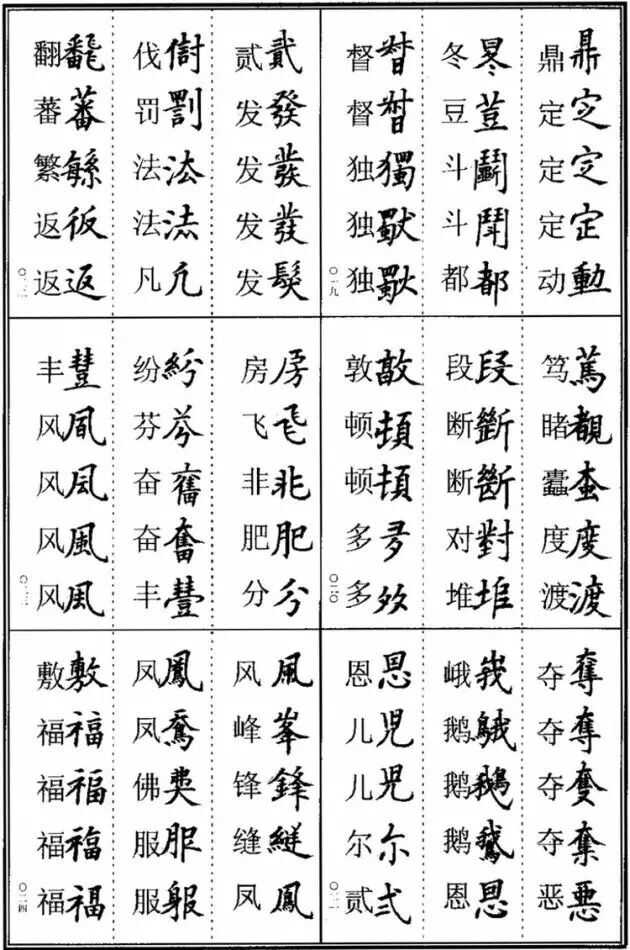 鼎鼎
定㝎
定㝎
定定
动動
冬冬
豆荳
斗鬭
斗鬥
都都
督督
督督
独獨
独
独
〇一九
笃篤
睹覩
蠹蚕
度度
渡渡
段段
断斷
断斷
对對
堆堆
敦敦
顿頓
顿頓
多多
多
〇二〇
夺奪
夺奪
夺奪
夺奪
恶悪
峨峩
鹅䳘
鹅鵝
鹅鵞
恩恩
恩恩
儿児
儿兒
尔尓
贰弍
〇二一
贰貳
发發
发發
发發
发髮
伐
罚罰
法法
法法
凡凢
翻飜
蕃蕃
繁緐
返仮
返返
〇二二
房房
飞飛
非非
肥肥
分分
纷紛
芬芬
奋奮
奋奮
丰豐
丰豐
风凬
风凨
风風
风風
〇二三
风風
峰峯
锋鋒
缝縫
凤鳳
凤鳳
凤
佛
服服
服
敷敷
福福
福福
福福
福福
〇二四